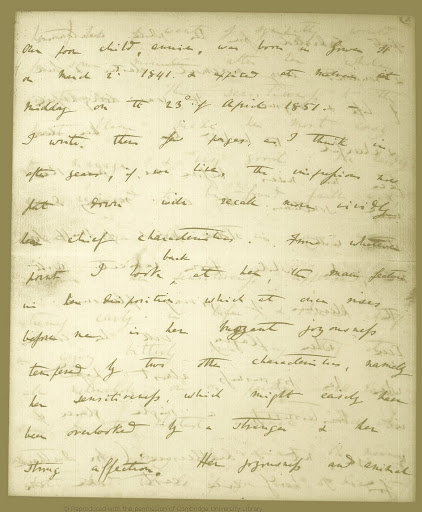 Our poor child, Annie, was born in Gower St
on March 2d. 1841. & expired at Malvern at
Midday on the 23d. of April 1851. —
I write these few pages, as I think in
after years, if we live, the impressions now
put down will recall more vividly
her chief characteristics. From whatever
point I look back at her, the main feature
in her disposition which at once rises
before me is her buoyant joyousness
tempered by two other characteristics, namely
her sensitiveness, which might easily have
been overlooked by a stranger & her
strong affection. Her joyousness and animal
© Reproduced with the permission of Cambridge University Library